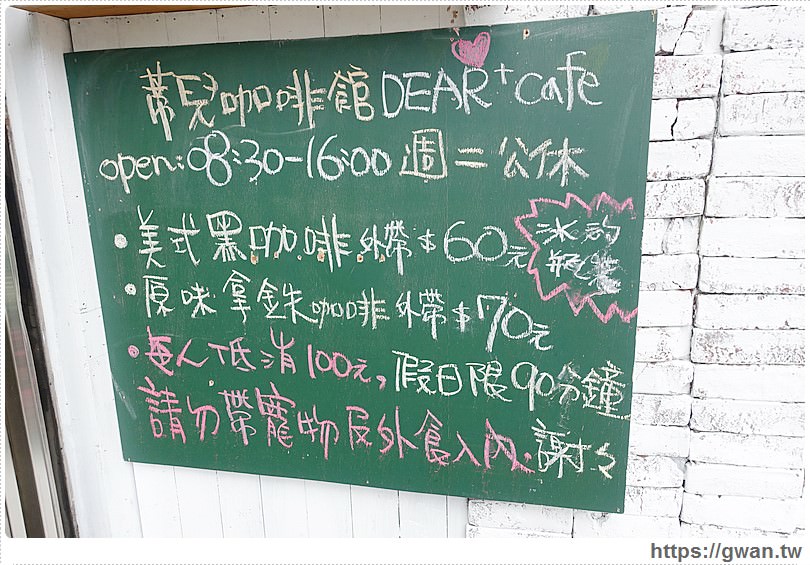 蒂兒咖啡館DEAR+cafe
open:08:30-16:00 週二公休
•美式黑咖啡外帶$60元
冰的
•原味拿鐵咖啡外帶$70元
•每人低消100元,假日限90分鐘
請勿帶寵物及外食入內.謝謝
https://gwan.tw